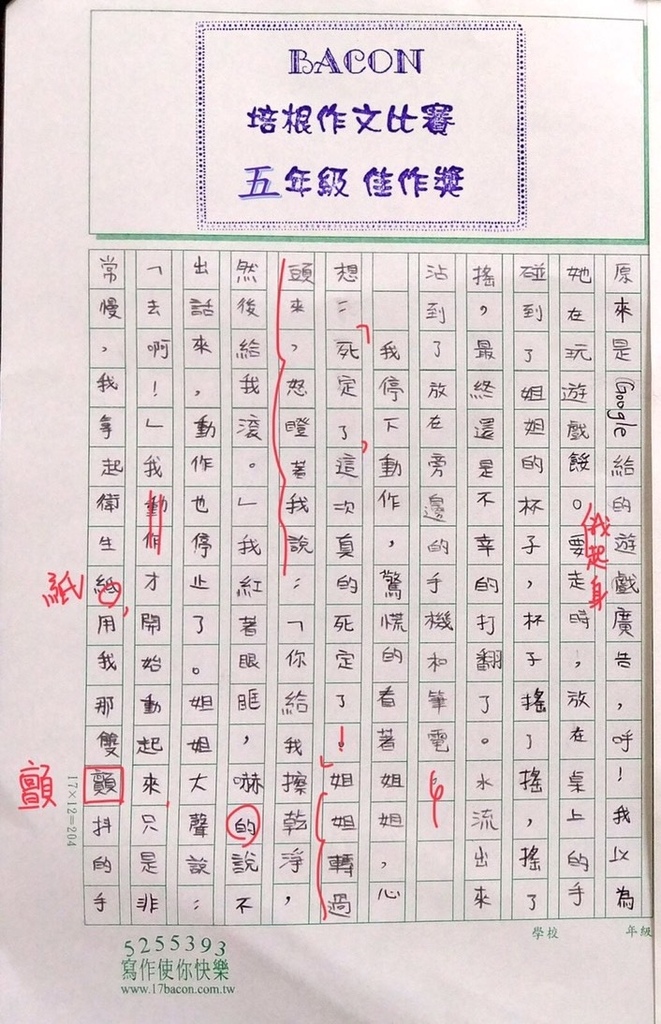 BACON
培根作文比賽
五年級 佳作獎
原來是Google給的遊戲廣告,呼!我以為
她在玩遊戲餒。要走時,放在桌上的手
我起身
碰到了姐姐的杯子,杯子搖了搖,搖了
搖,最終還是不幸的打翻了。水流出來
沾到了放在旁邊的手機和筆電。
我停下動作,驚慌的看著姐姐,心
想:「死定了,這次真的死定了!」姐姐轉過
頭來,怒瞪著我說:「你給我擦乾淨,
然後給我滾。」我紅著眼眶,嚇的說不
出話來,動作也停止了。姐姐大聲說:
「去啊!」我動作才開始動起來,只是非
常慢,我拿起衛生紙,用我那雙顫抖的手
紙
顫
17×12=204
學校
年級
5255393
寫作使你快樂
www.17bacon.com.tw